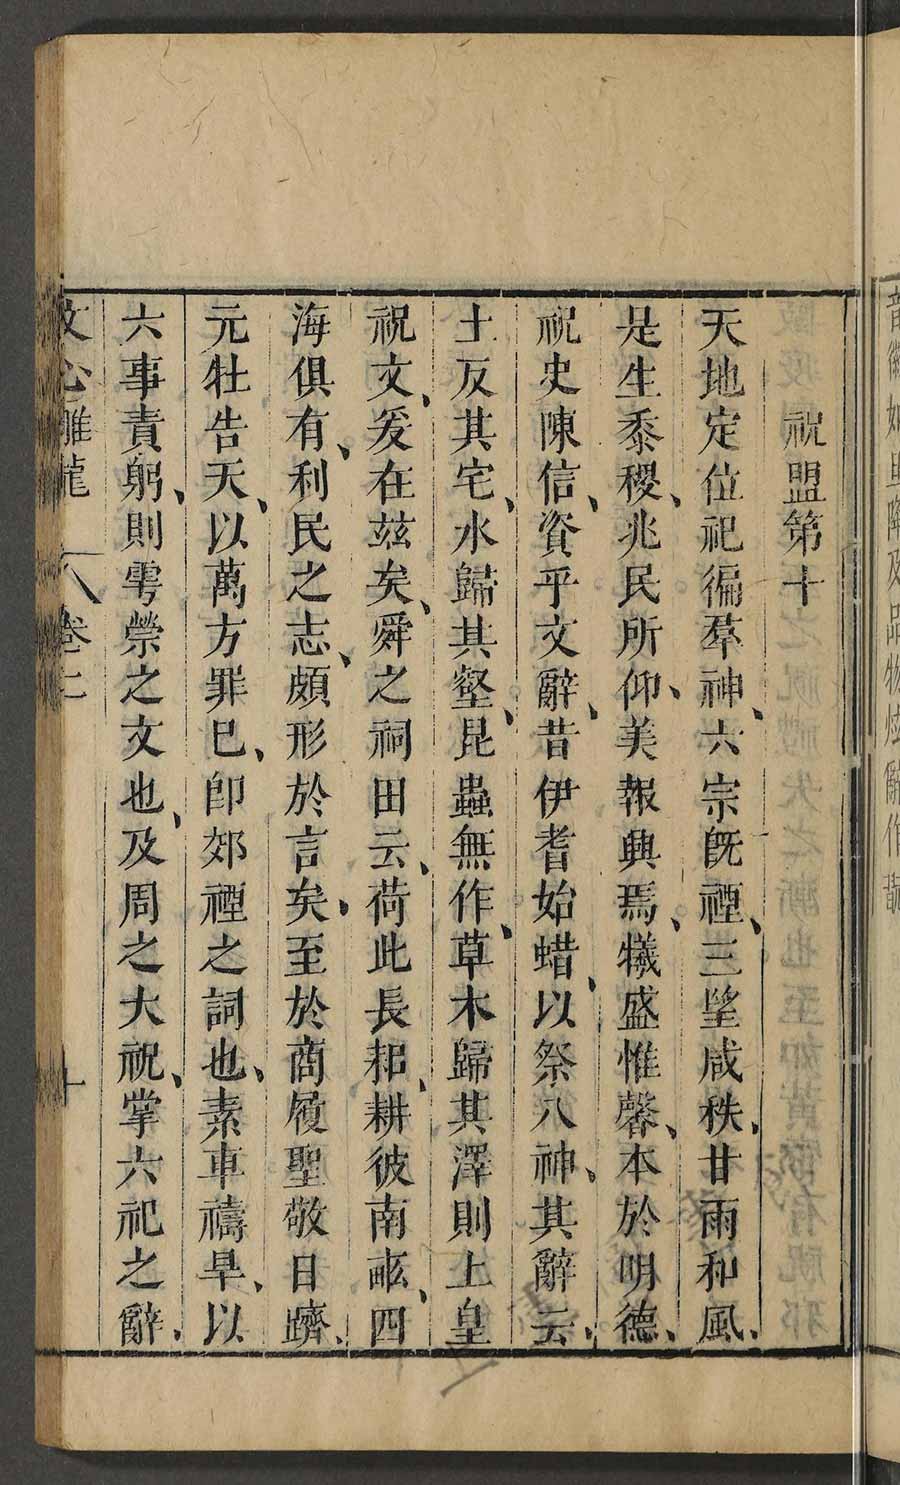 祝盟第十
天地定位祀徧羣神、六宗旣禋、三望咸秩、甘雨和風、
是生黍稷、兆民所仰、美報興焉、犧盛惟馨、本於明德、
祝史陳信、資乎文辭、昔伊耆始蜡、以祭八神、其辭云、
土反其宅、水歸其壑、昆蟲無作、草木歸其澤則上皇
祝文、爰在玆矣、舜之祠田云、荷此長耜、耕彼南畝、四
海俱有、利民之志、頗形於言矣、至於商履聖敬日躋、
元牡告天、以萬方罪已、卽郊禋之詞也、素車禱旱、以
六事責躬、則雩禜之文也、及周之大祝、掌六祀之辭、
文心雕龍 卷二 十